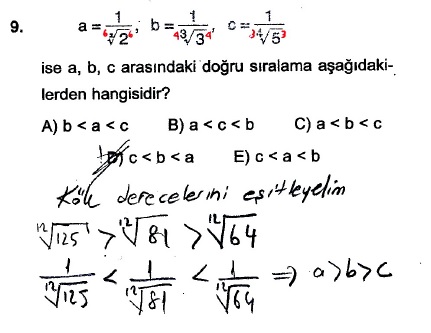 9. a = 1/⁶√2⁶, b = 1/⁴∛3⁴, c = 1/³∜5³
ise a, b, c arasındaki doğru sıralama aşağıdaki-
lerden hangisidir?
A) b < a < c B) a < c < b C) a < b < c
D) c < b < a E) c < a < b
Kök derecelerini eşitleyelim
¹²√125 > ¹²√81 > ¹²√64
1/¹²√125 < 1/¹²√81 < 1/¹²√64 ⇒ a > b > c